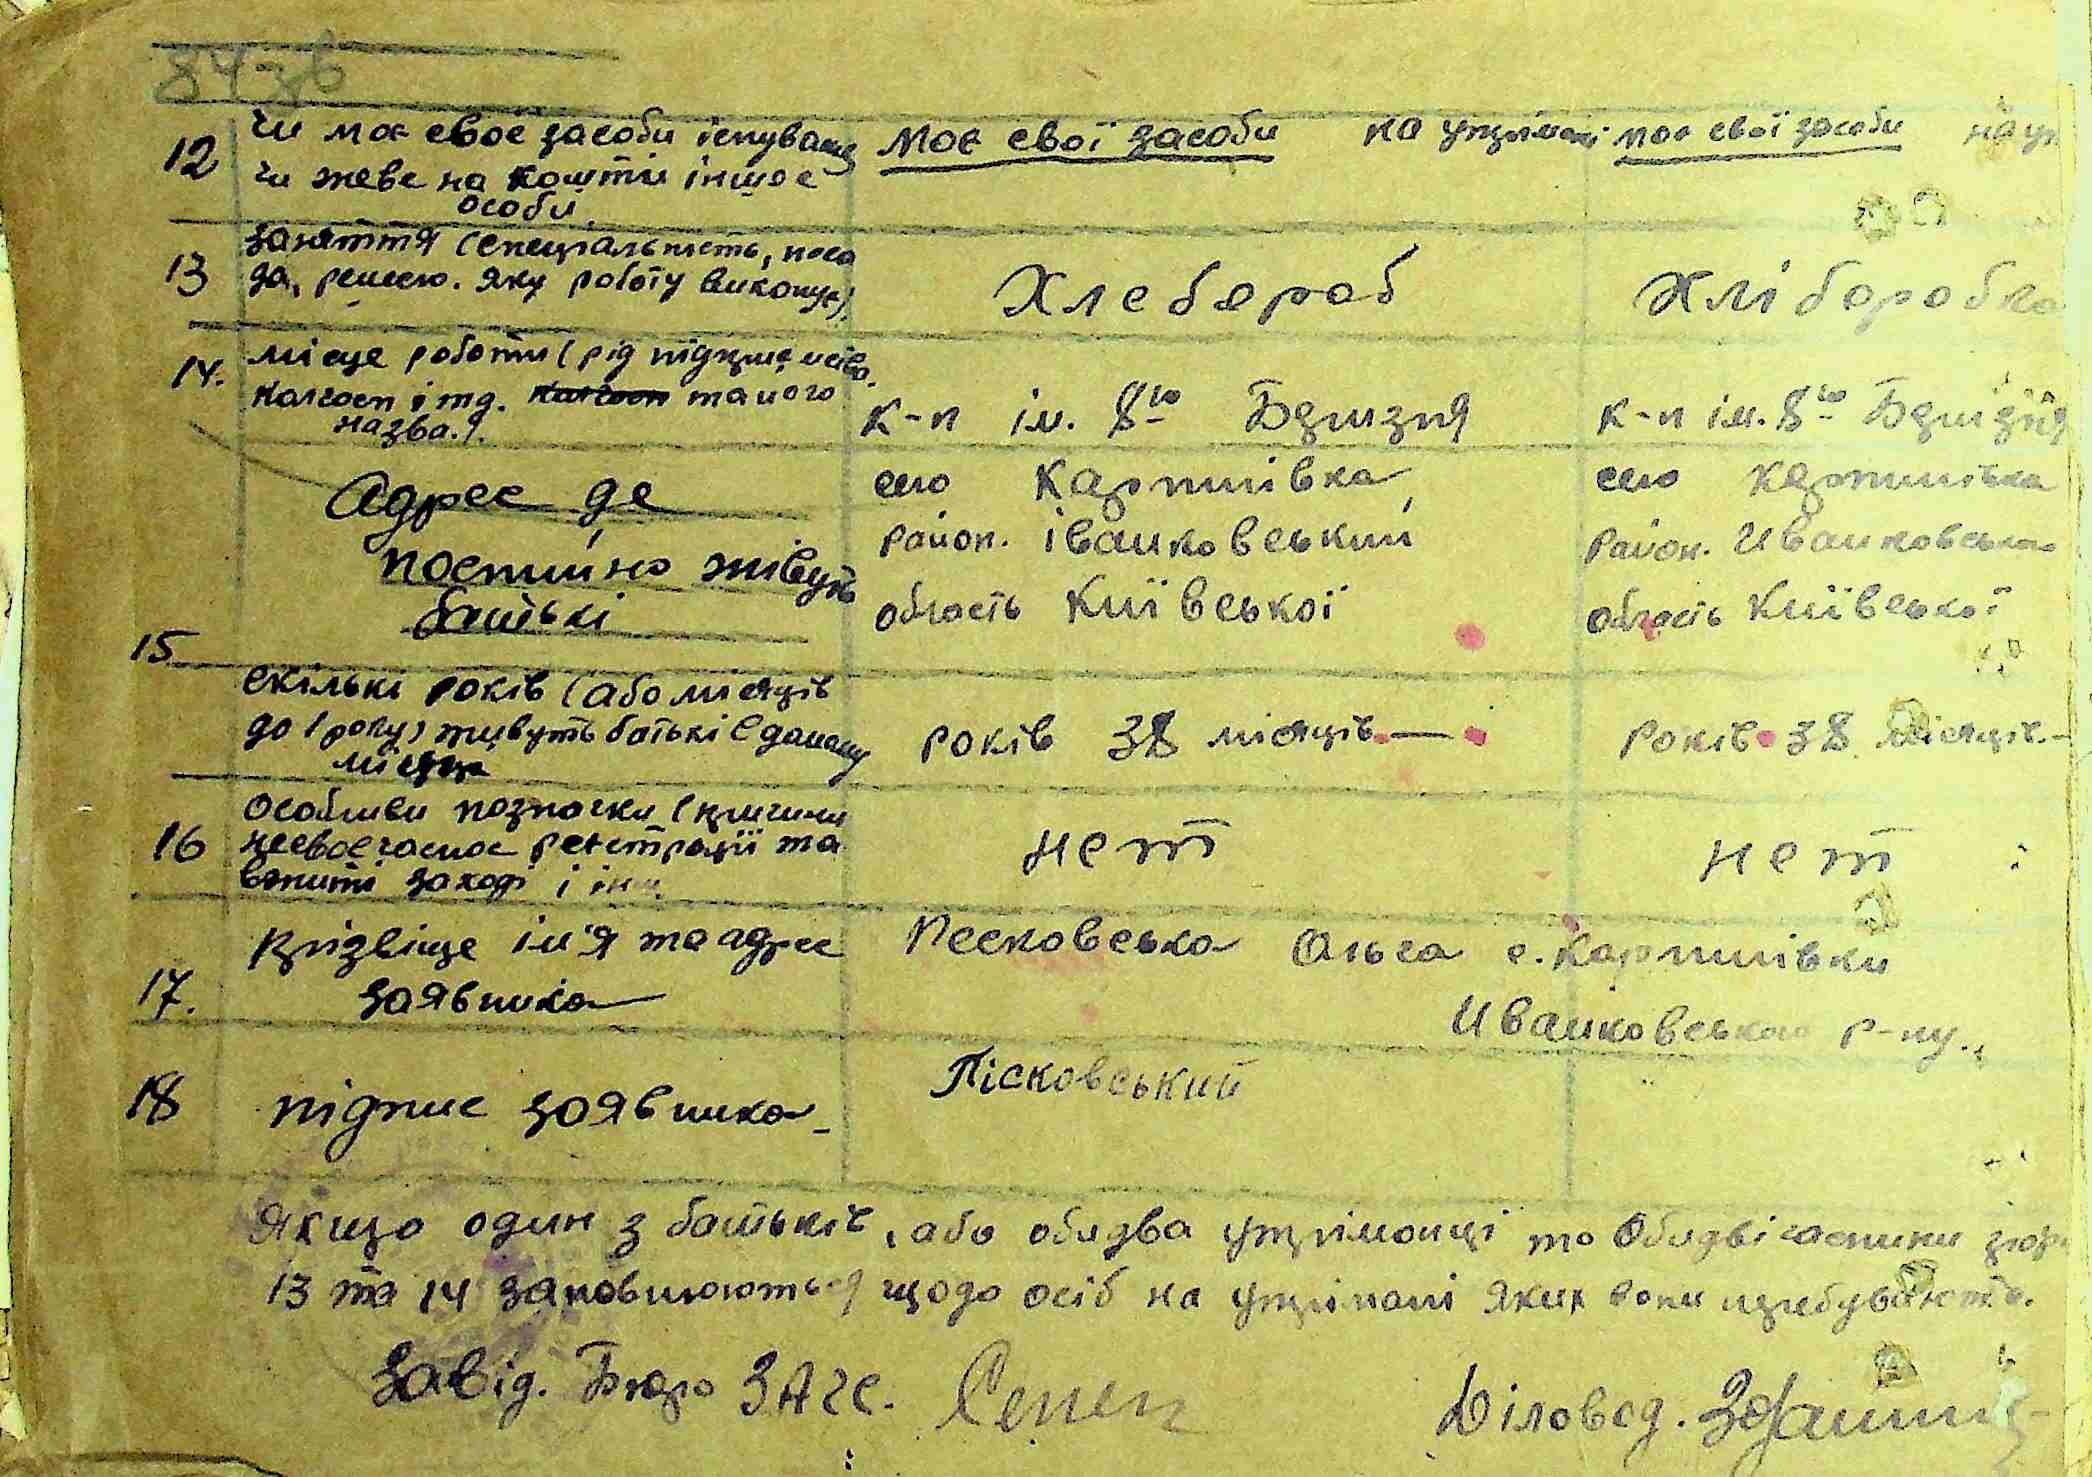 84 зв
12 Чи має своє засоби існування має свої засоби на утриманні має свої засоби на ут
чи жеве на кошти іншоє
особи
13 заняття (спеціальність, поса
да, ремесло. яку роботу виконує). Хлебороб Хліборобка
14. місце роботи (рід підприємства.
колгосп і тд. такого к-п ім. 8го Березня к-п ім. 8го Березня
назва.).
Адрес де село Карпилівка, село Карпилівка
постійно живуть район. іванковський район. Иванковський
батькі область Київської область Київської
15
скількі років (або місяців
до 1 року) живуть батькі в даному років 38 місяців — років 38 місяців. —
місци
16 особливи позначки (причини
несвоєчасноє реєстрації та нет нет
вжиті заході і інш.
17. прізвіще ім'я та адрес Песковська Ольга с. Карпилівки
заявника Иванковського р-ну.
18 підпис заявника Пісковський
Якщо один з батьків, або обидва утриманці то обидві частини
13 та 14 заповнюються щодо осіб на утримані яких вони перебувають.
Завід. Бюро ЗАГС. Діловод.